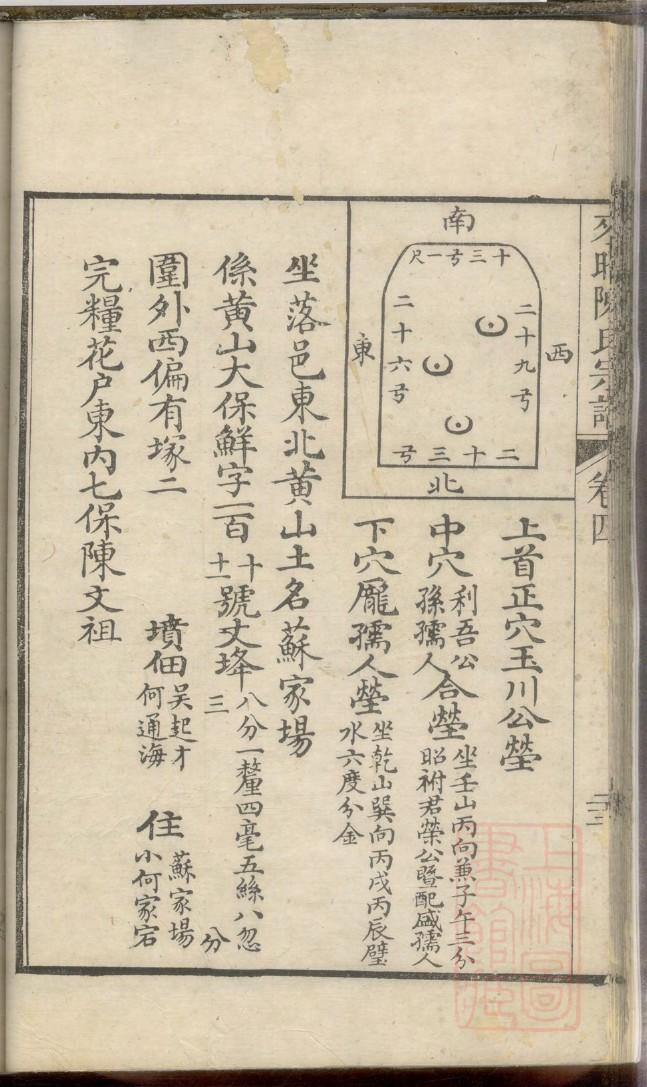 陳氏宗譜
卷四
南
十三弓一尺
西
二十九弓
二十六弓
東
二十三弓
北
上首正穴玉川公塋
中穴
利吾公
孫孺人
合塋
坐壬山丙向兼子午三分
昭祔君榮公暨配盛孺人
下穴龐孺人塋
坐乾山巽向丙戌丙辰璧
水六度分金
坐落邑東北黃山土名蘇家場
係黃山大保鮮字一百
十
十一
號丈垟
八分一釐四毫五絲八忽
三分
圍外西偏有塚二
墳佃
吴起才
何通海
住
蘇家場
小何家宕
完糧花户東内七保陳文祖
上海圖書館藏